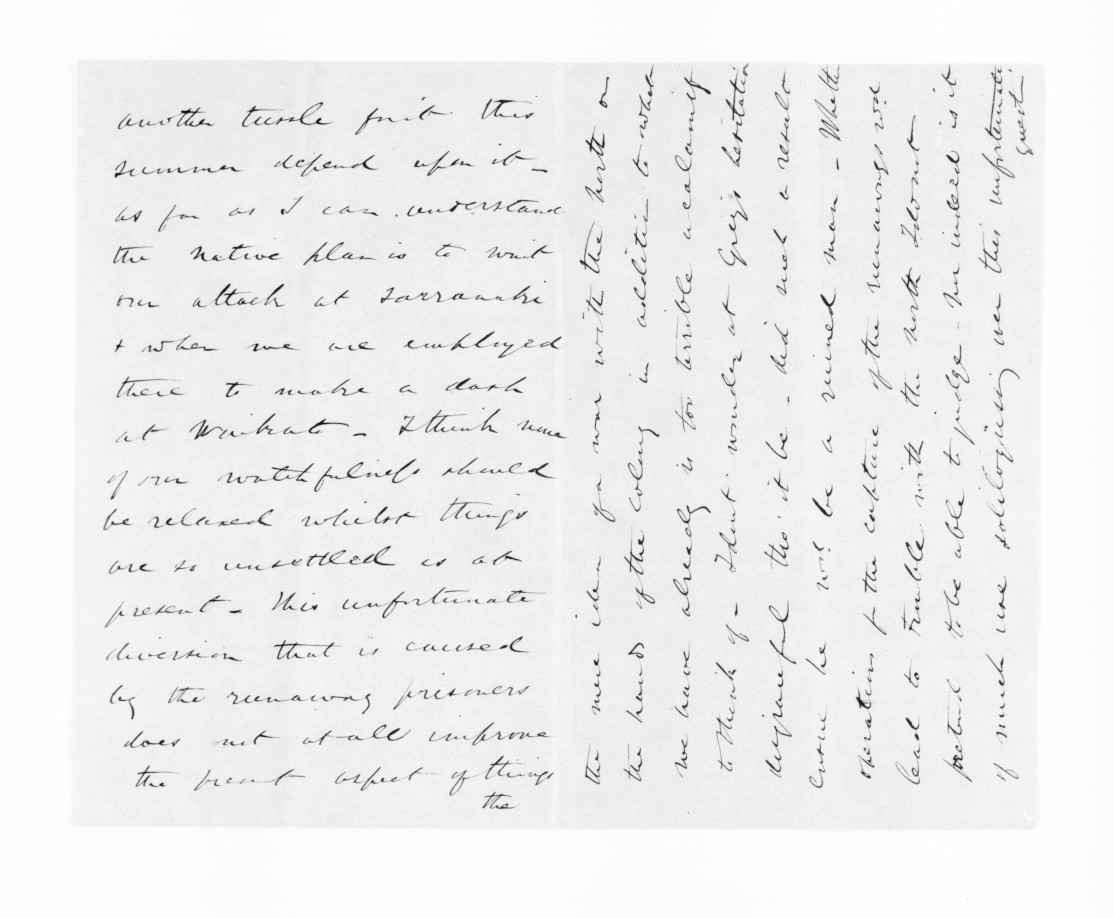 another tussle for it this
summer depend upon it –
as far as I can understand
the Native plan is to wait
our attack at Tarranaki
+ when we are employed
there to make a dash
at Waikato – I think none
of our watchfulness should
be relaxed whilst things
are so unsettled as at
present – This unfortunate
diversion that is caused
by the runaway prisoners
does not at all improve
the present aspect of things
the
the mere idea of a war with the north on
the hands of the colony in addition to what
we have already is too terrible a calamity
to think of – I dont wonder at Grey's hesitation
disgraceful tho' it be – did such a result
ensue he wd. be a ruined man – Whether
operations for the capture of the runaways wd
lead to trouble with the north I do not
pretend to be able to judge – nor indeed is it
of much use soliloquising over this unfortunate
quest